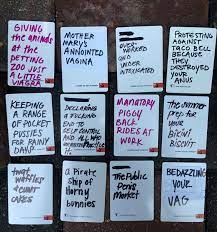 GIVING
the animals
at the
PETTING
ZOO JUST
A LITTLE
VIAGRA
MOTHER
MARY'S
ANNOINTED
VAGINA
OVER-
WORKED
AND
UNDER
INTOXICATED
PROTESTING
AGAINST
TACO BELL
BECAUSE
THEY
DESTROYED
YOUR
ANUS
KEEPING
A RANGE
OF POCKET
PUSSIES
FOR RAINY
DAYS
DECLARING
A FUCKING
END TO
SELF CONTROL
AND ALL WHO
PRACTICE
IT
MANATORY
PIGGY
BACK
RIDES AT
WORK
the summer
PREP
for
your
BICINI
BISCUIT
that
waffles
& cunt
cakes
a Pirate
Ship
of Horny
bunnies
The
Public
Penis
Market
BEDAZZLING
YOUR
VAG